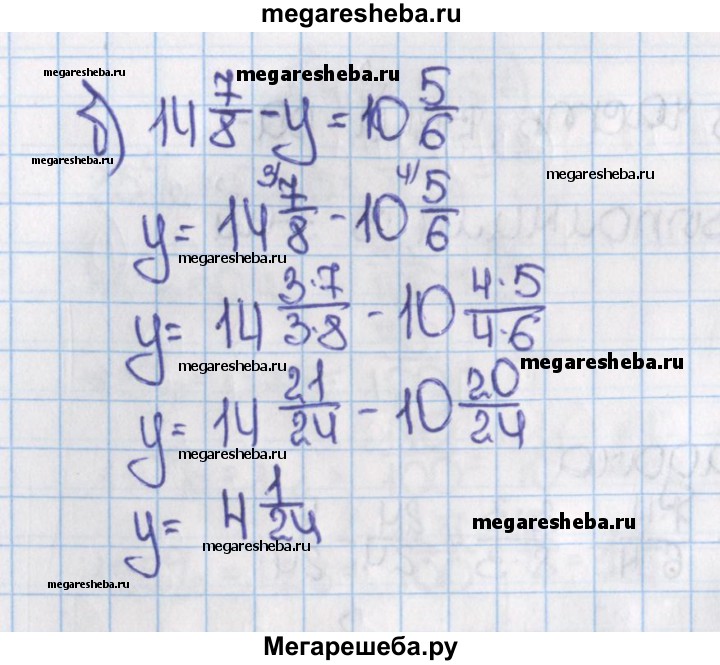 megaresheba.ru
megaresheba.ru megaresheba.ru
б) 14 7/8 - y = 10 5/6
megaresheba.ru megaresheba.ru
y = 14 3/ 7/8 - 10 4/ 5/6
megaresheba.ru
y = 14 3·7/3·8 - 10 4·5/4·6
megaresheba.ru megaresheba.ru
y = 14 21/24 - 10 20/24
megaresheba.ru
y = 4 1/24
megaresheba.ru megaresheba.ru
megaresheba.ru
Мегарешеба.ру